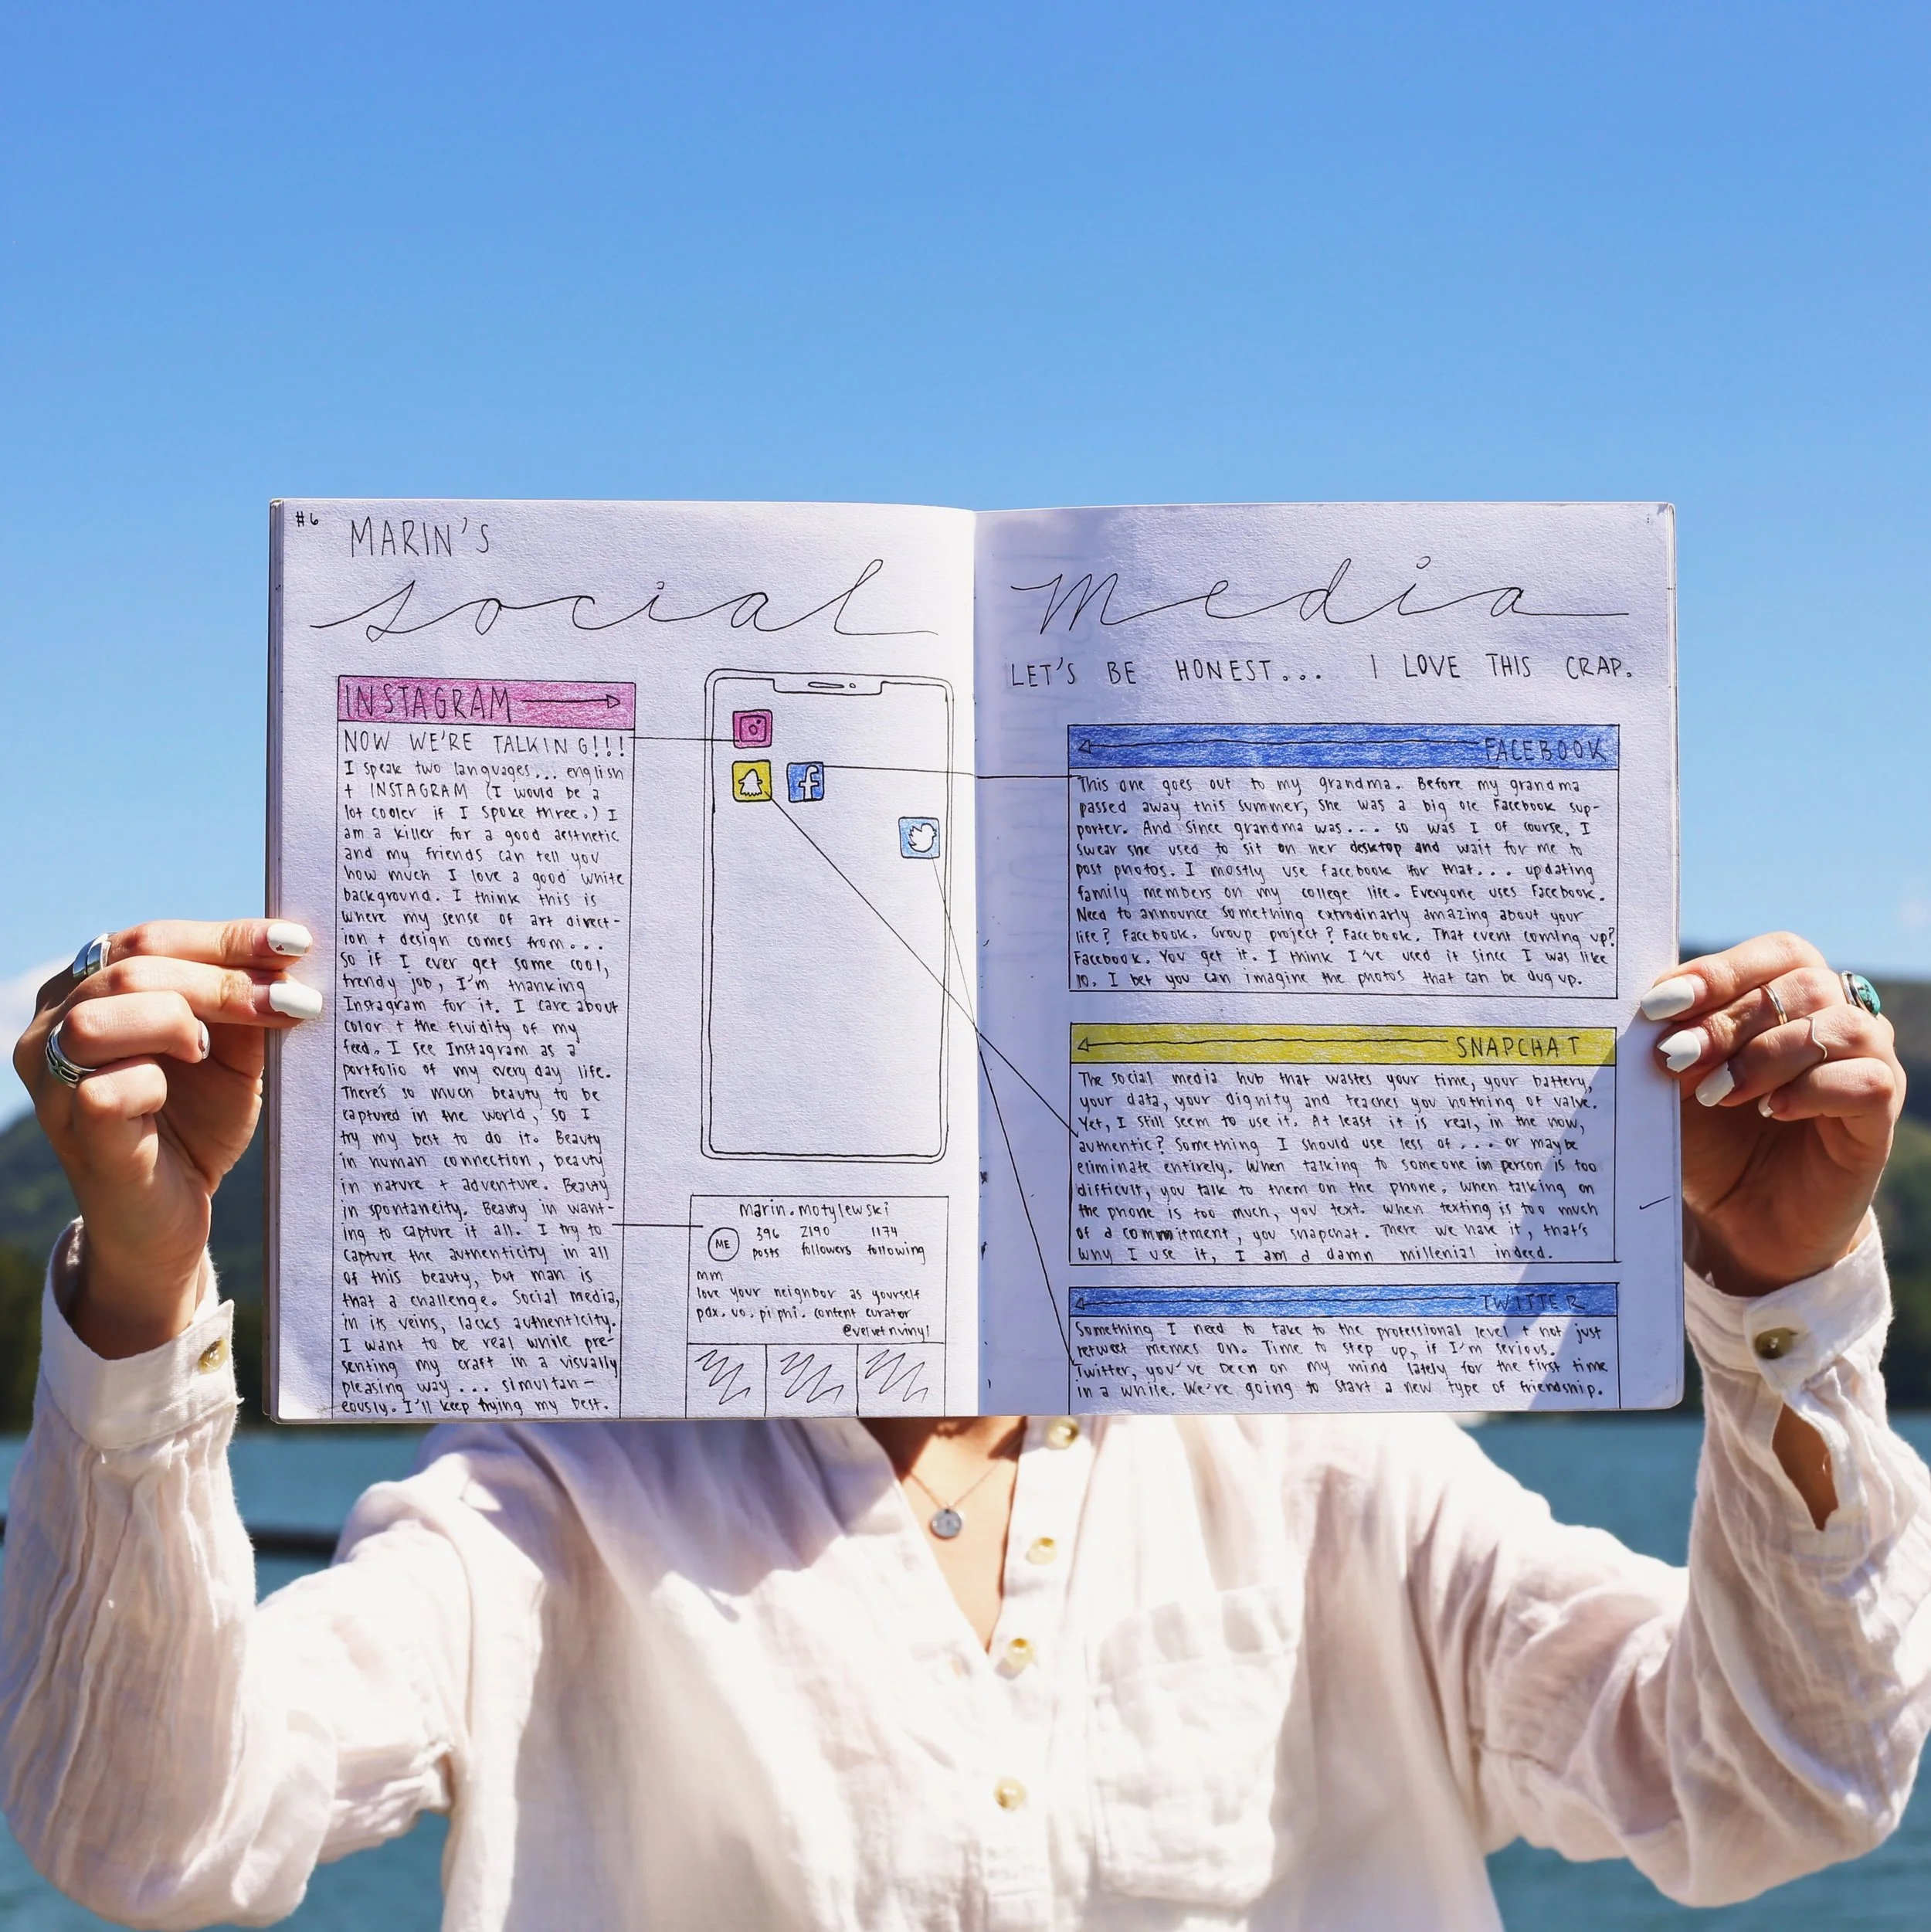 #6
MARIN'S
social media
LET'S BE HONEST... I LOVE THIS CRAP.
INSTAGRAM
NOW WE'RE TALKING!!!
I speak two languages... english
+ INSTAGRAM (I would be a
lot cooler if I spoke three.) I
am a killer for a good aesthetic
and my friends can tell you
how much I love a good white
background. I think this is
where my sense of art direct-
ion + design comes from...
so if I ever get some cool,
trendy job, I'm thanking
Instagram for it. I care about
color + the fluidity of my
feed. I see Instagram as a
portfolio of my every day life.
There's so much beauty to be
captured in the world, so I
try my best to do it. Beauty
in human connection, beauty
in nature + adventure. Beauty
in spontaneity. Beauty in want-
ing to capture it all. I try to
capture the authenticity in all
of this beauty, but man is
that a challenge. Social media,
in its veins, lacks authenticity.
I want to be real while pre-
senting my craft in a visually
pleasing way... simultan-
eously. I'll keep trying my best.
marin.motylewski
ME
396 2190 1174
posts followers following
mm
love your neighbor as yourself
pdx. uo. pi phi. content curator
@velvetnvinyl
FACEBOOK
This one goes out to my grandma. Before my grandma
passed away this summer, she was a big ole Facebook sup-
porter. And since grandma was... so was I of course, I
swear she used to sit on her desktop and wait for me to
post photos. I mostly use Facebook for that... updating
family members on my college life. Everyone uses Facebook.
Need to announce something extrodinarly amazing about your
life? Facebook. Group project? Facebook. That event coming up?
Facebook. You get it. I think I've used it since I was like
10. I bet you can imagine the photos that can be dug up.
SNAPCHAT
The social media hub that wastes your time, your battery,
your data, your dignity and teaches you nothing of valve.
Yet, I still seem to use it. At least it is real, in the now,
authentic? Something I should use less of... or maybe
eliminate entirely. When talking to someone in person is too
difficult, you talk to them on the phone. When talking on
the phone is too much, you text. When texting is too much
of a commitment, you snapchat. There we have it, that's
why I use it, I am a damn millenial indeed.
TWITTER
Something I need to take to the professional level + not just
retweet memes on. Time to step up, if I'm serious.
Twitter, you've been on my mind lately for the first time
in a while. We're going to start a new type of friendship.